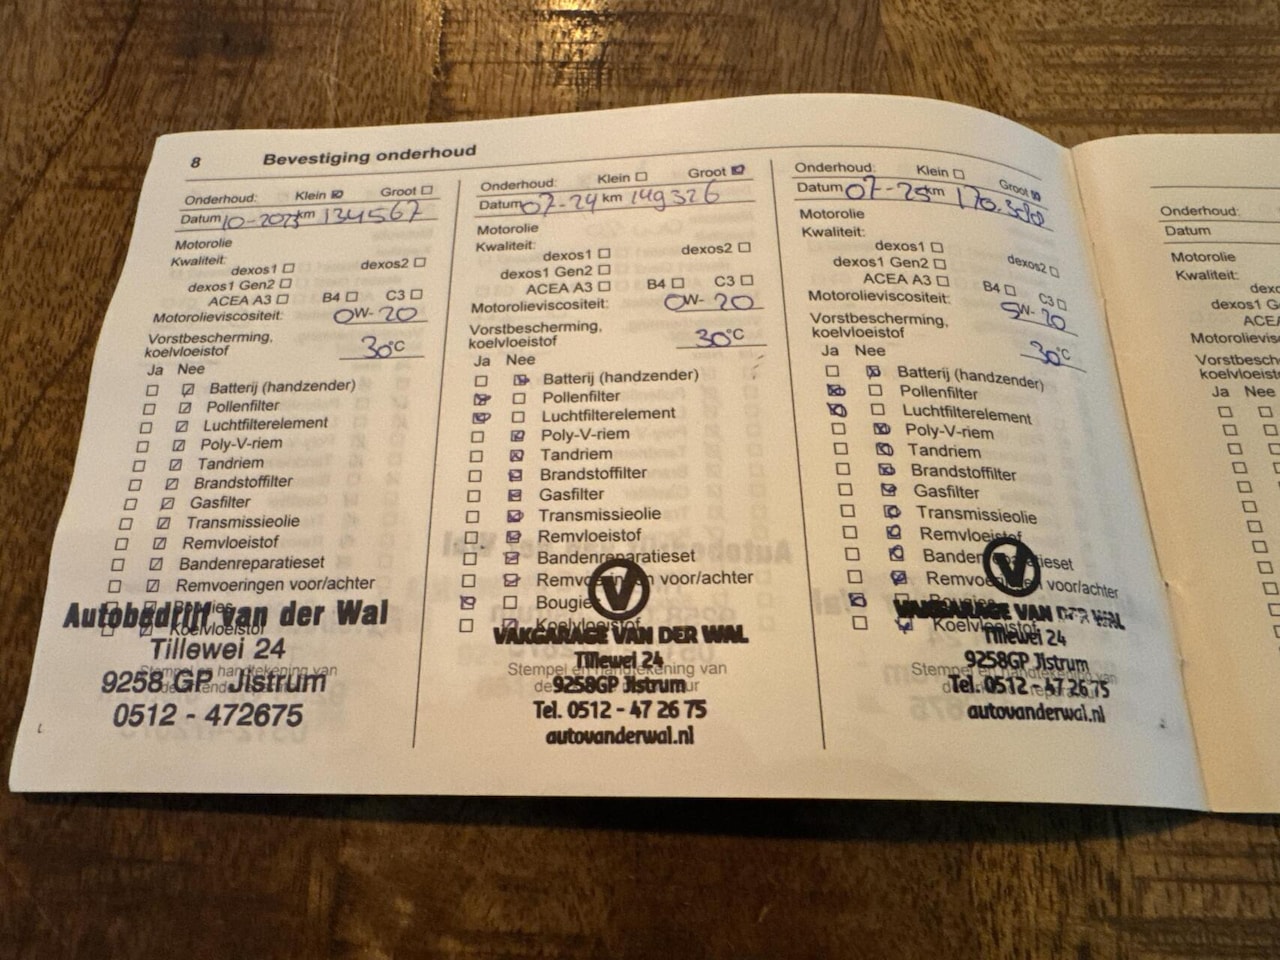 8 Bevestiging onderhoud
Onderhoud: Klein Groot
Datum 10-2023 km 134567
Motorolie
Kwaliteit:
dexos1 dexos2
dexos1 Gen2
ACEA A3 B4 C3
Motorolieviscositeit: 0W-20
Vorstbescherming,
koelvloeistof 30°C
Ja Nee
Batterij (handzender)
Pollenfilter
Luchtfilterelement
Poly-V-riem
Tandriem
Brandstoffilter
Gasfilter
Transmissieolie
Remvloeistof
Bandenreparatieset
Remvoeringen voor/achter
Bougies
Koelvloeistof
Autobedrijf van der Wal
Tillewei 24
Stempel en handtekening van
9258 GP Jistrum
0512 - 472675
Onderhoud: Klein Groot
Datum 07-24 km 149326
Motorolie
Kwaliteit:
dexos1 dexos2
dexos1 Gen2
ACEA A3 B4 C3
Motorolieviscositeit: 0W-20
Vorstbescherming,
koelvloeistof 30°C
Ja Nee
Batterij (handzender)
Pollenfilter
Luchtfilterelement
Poly-V-riem
Tandriem
Brandstoffilter
Gasfilter
Transmissieolie
Remvloeistof
Bandenreparatieset
Remvoeringen voor/achter
Bougies
Koelvloeistof
V
VAKGARAGE VAN DER WAL
Tillewei 24
Stempel en handtekening van
9258GP Jistrum
Tel. 0512 - 47 26 75
autovanderwal.nl
Onderhoud: Klein Groot
Datum 07-25 km
Motorolie
Kwaliteit:
dexos1 dexos2
dexos1 Gen2
ACEA A3 B4 C3
Motorolieviscositeit:
Vorstbescherming,
koelvloeistof 30°C
Ja Nee
Batterij (handzender)
Pollenfilter
Luchtfilterelement
Poly-V-riem
Tandriem
Brandstoffilter
Gasfilter
Transmissieolie
Remvloeistof
Bandenreparatieset
Remvoeringen voor/achter
Bougies
Koelvloeistof
V
VAKGARAGE VAN DER WAL
Tillewei 24
Stempel en handtekening van
9258GP Jistrum
Tel. 0512 - 47 26 75
autovanderwal.nl
Onderhoud:
Datum
Motorolie
Kwaliteit:
Ja Nee